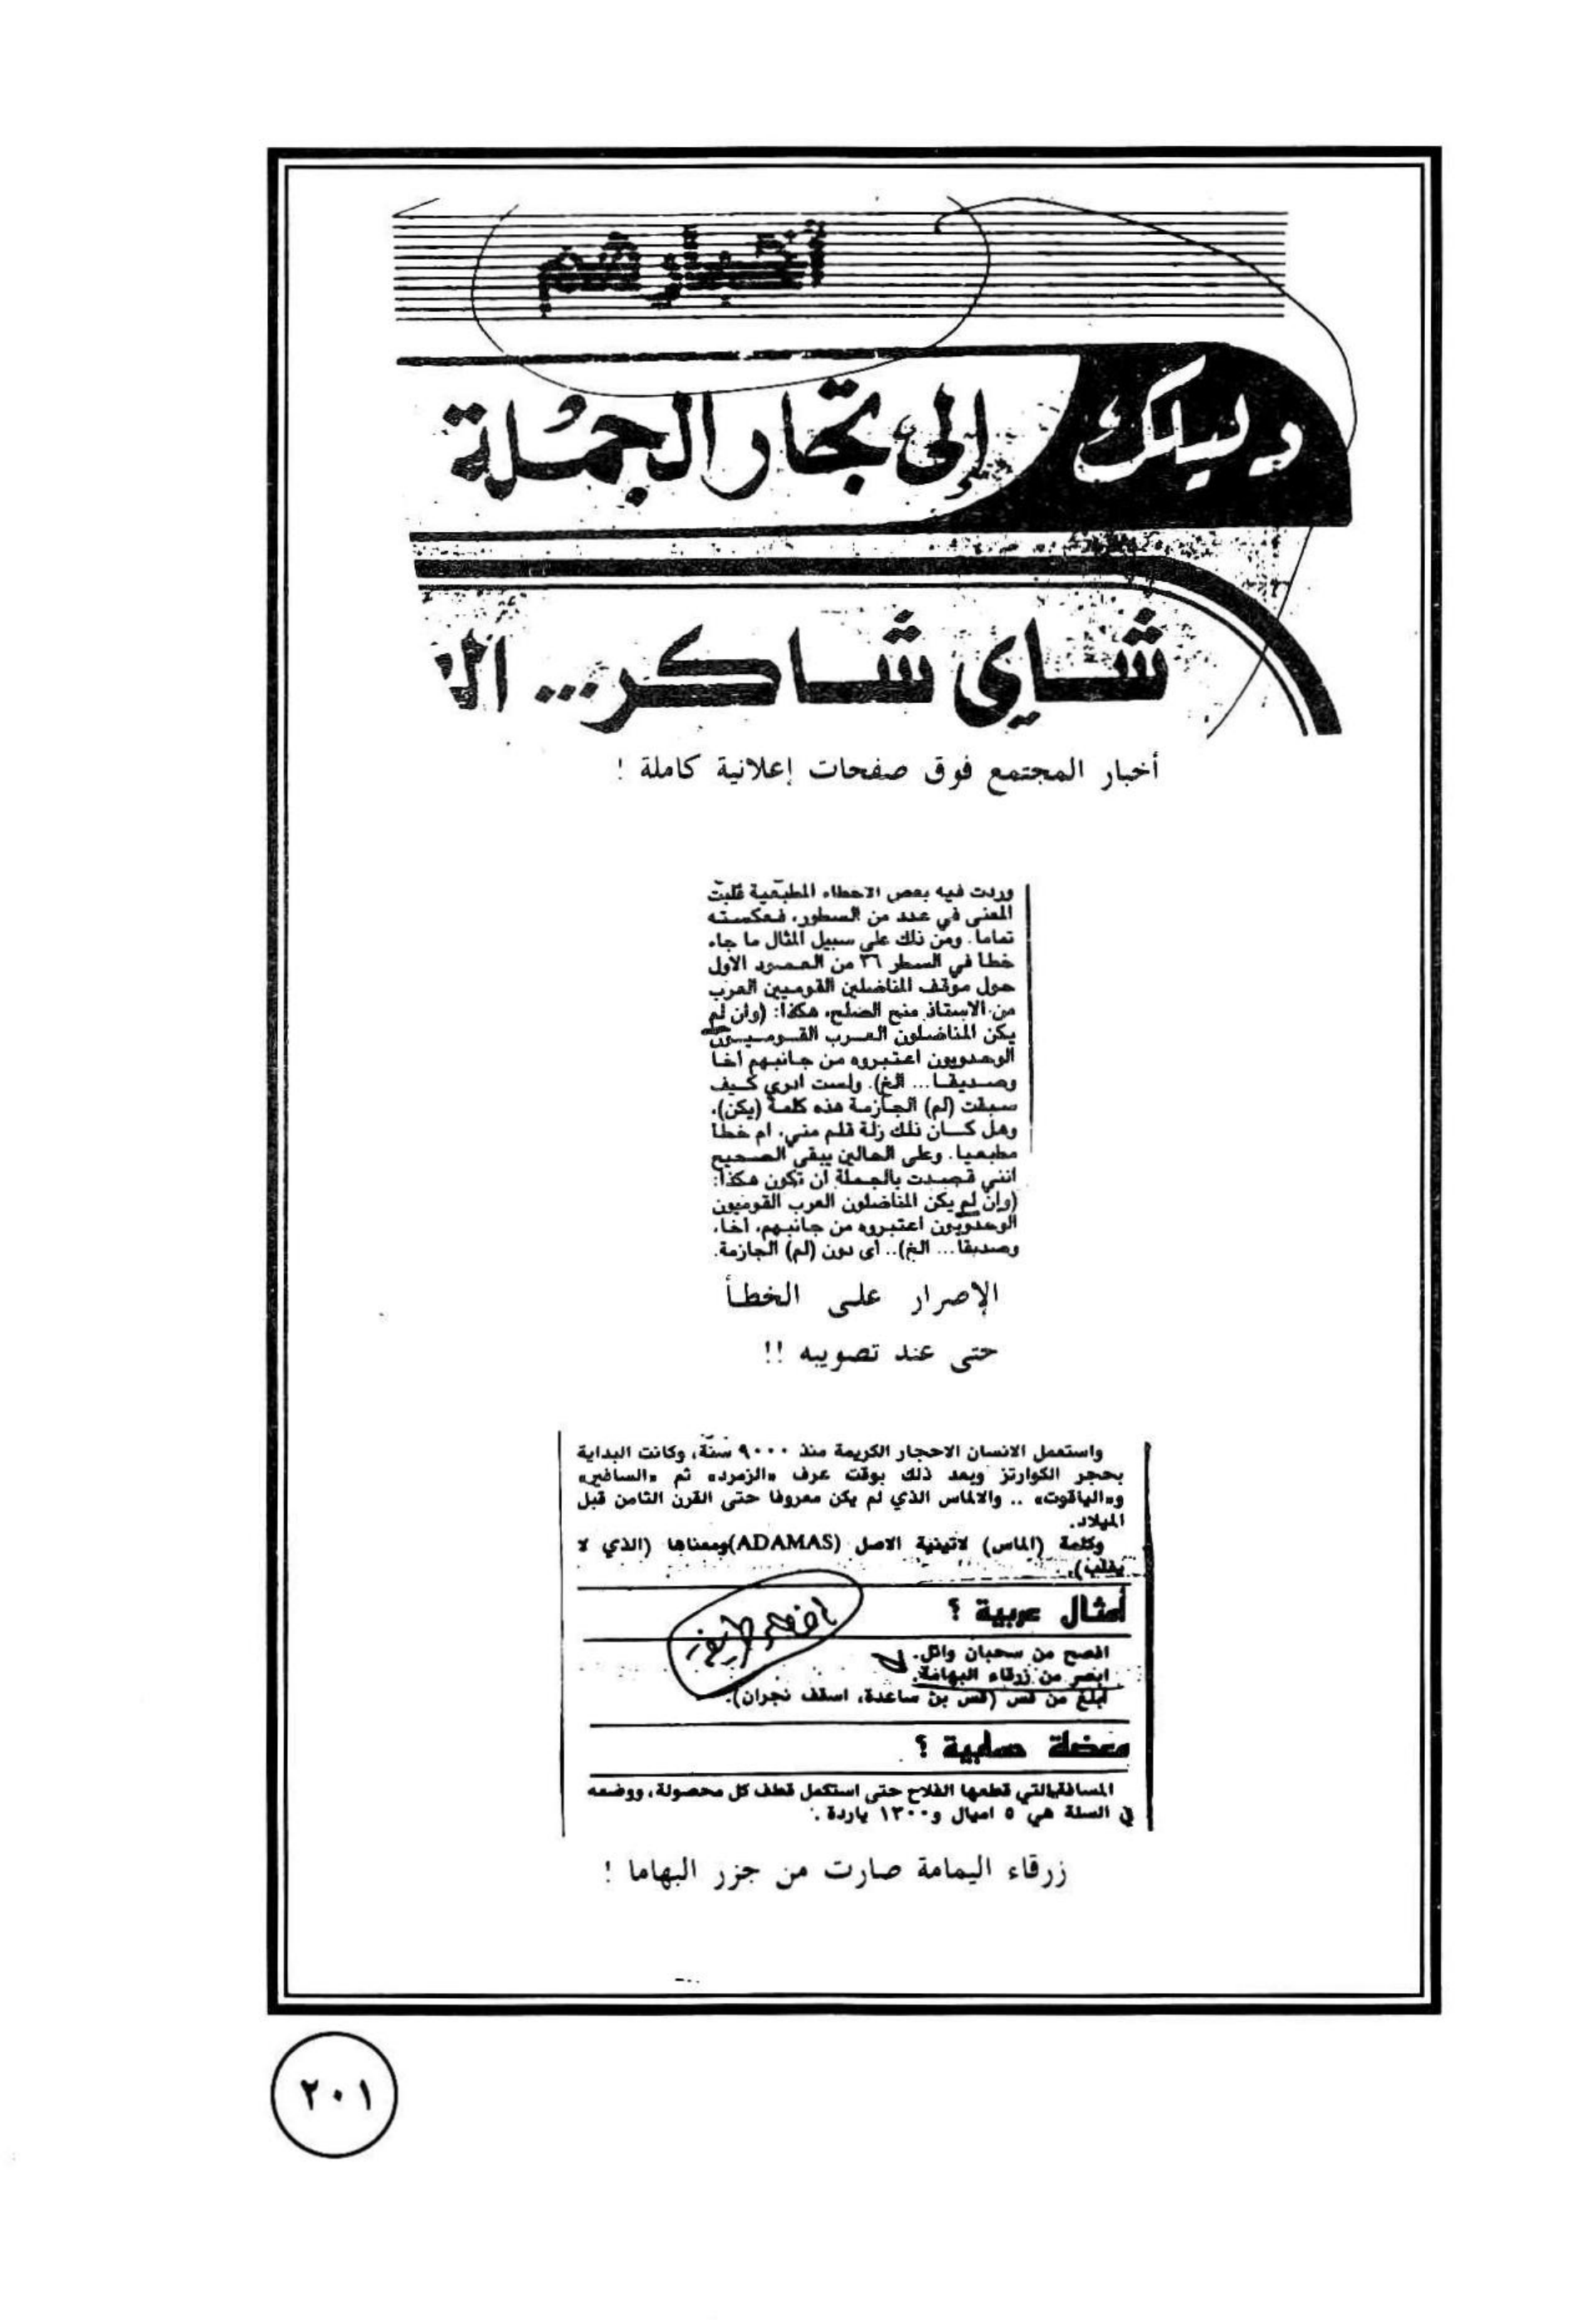 أخبارهم
دليلك إلى تجار الجملة
شاي شاكر...
أخبار المجتمع فوق صفحات إعلانية كاملة !
وردت فيه بعض الاخطاء المطبعية قلبت
المعنى في عدد من السطور، فعكسته
تماما. ومن ذلك على سبيل المثال ما جاء
خطا في السطر ٣٦ من العمود الاول
حول موقف المناضلين القوميين العرب
من الاستاذ منح الصلح، هكذا: (وان لم
يكن المناضلون العرب القوميون
الوحدويون اعتبروه من جانبهم اخا
وصديقا... الخ). ولست ادري كيف
سبقت (لم) الجازمة هذه كلمة (يكن)،
وهل كان ذلك زلة قلم مني، ام خطا
مطبعيا. وعلى الحالين يبقى الصحيح
انني قصدت بالجملة ان تكون هكذا:
(وان لم يكن المناضلون العرب القوميون
الوحدويون اعتبروه من جانبهم، اخا،
وصديقا... الخ).. اى دون (لم) الجازمة.
الإصرار على الخطأ
حتى عند تصويبه !!
واستعمل الانسان الاحجار الكريمة منذ ٩٠٠٠ سنة، وكانت البداية
بحجر الكوارتز وبعد ذلك بوقت عرف «الزمرد» ثم «السافير»
و«الياقوت» .. والالماس الذي لم يكن معروفا حتى القرن الثامن قبل
الميلاد.
وكلمة (الماس) لاتينية الاصل (ADAMAS)ومعناها (الذي لا
يغلب).
أمثال عربية ؟
افصح من سحبان وائل.
ابصر من زرقاء البهامة.
ابلغ من قس (قس بن ساعدة، اسقف نجران).
معضلة حسابية ؟
المسافةالتي قطعها الفلاح حتى استكمل قطف كل محصولة، ووضعه
في السلة هي ٥ اميال و١٣٠٠ ياردة .
زرقاء اليمامة صارت من جزر البهاما !
٢٠١